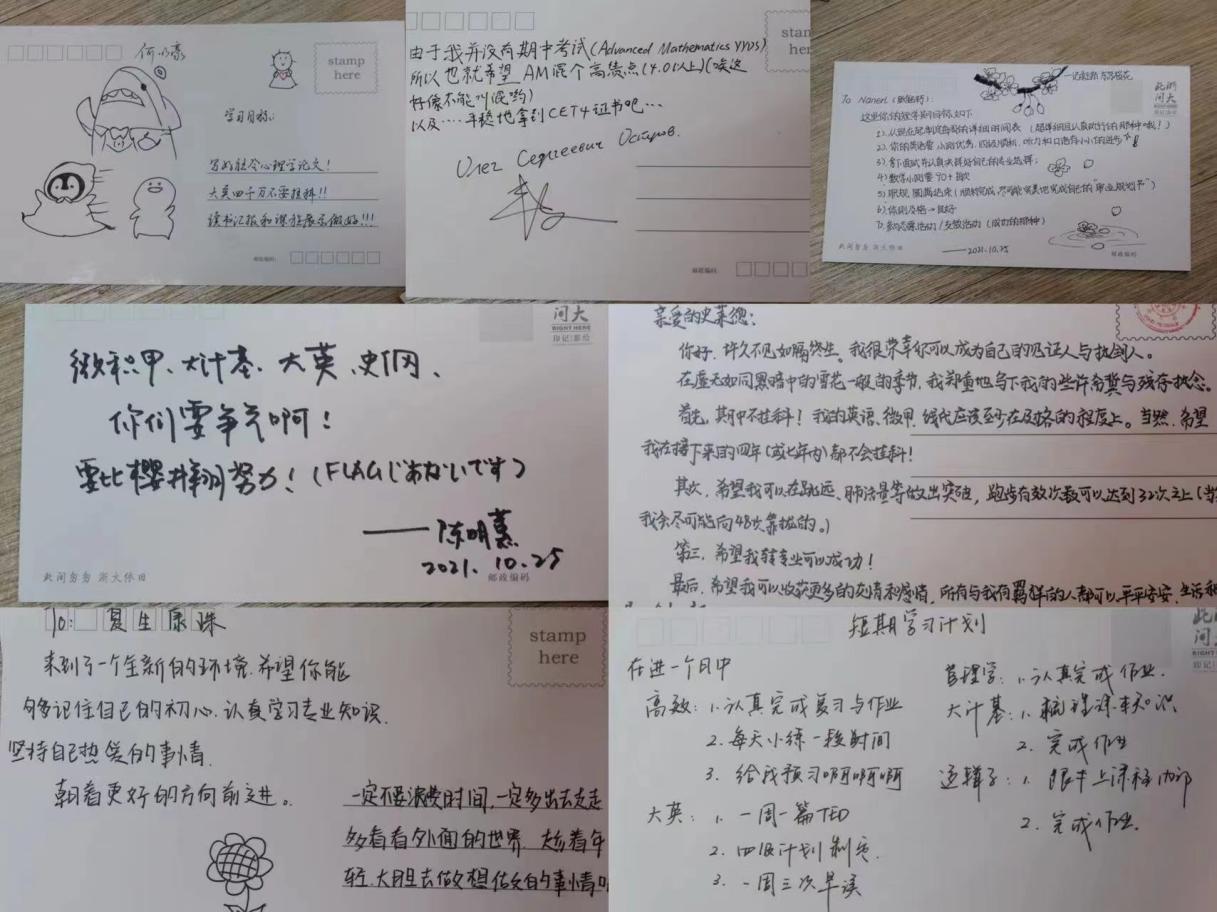 何以豪
stamp
here
学习目标:
写好社会心理学论文!
大英四千万不要挂科!!
读书汇报和课程展示做好!!!
邮政编码:
由于我并没有期中考试(Advanced Mathematics YYDS)
所以也就希望 AM混个高绩点(4.0以上)(唉这
好像不能叫混哟)
以及……平稳地拿到CET4证书吧…
Олег Сергеевич Остаров.
邮政编码:
To Nanerl
2) 你的英语要小测优秀,四级顺利,听力和口语有小小的进步!
4) 数学小测要90+
此间曾为 浙大依旧
——2021.10.25
邮政编码
问大
RIGHT HERE
印记|影绘
微积甲、大计基、大英、史纲、
你们要争气啊!
要比樱井翔努力!(FLAGじゃないです)
——陈明慕
2021.10.25
邮政编码
亲爱的史莱德:
你好,许久不见如隔终生,我很荣幸你可以成为自己的见证人与执剑人。
在虚无如同黑暗中的雪花一般的季节,我郑重地写下我的些许希冀与残存执念。
首先,期中不挂科!我的英语、微甲、线代应该至少在及格的程度上。当然,希望
我在接下来的四年(或七年内)都不会挂科!
其次,希望我可以在跳远、肺活量等做出突破,跑步有效次数可以达到32次之上(当
我会尽可能向48次靠拢的。)
第三,希望我转专业可以成功!
最后,希望我可以收获更多的友情和感情,所有与我有羁绊的人都可以平平安安,生活和
To: 夏生康珠
stamp
here
来到了一个全新的环境,希望你能
够多记住自己的初心,认真学习专业知识,
坚持自己热爱的事情,
朝着更好的方向前进。
一定不要浪费时间,一定多出去走走
多看看外面的世界,趁着年
轻,大胆去做想做的事情
短期学习计划
在进一个月中
高数:1.认真完成复习与作业
2.每天小练一段时间
3.给我预习啊啊啊啊
大英:1.一周一篇TED
2.四级计划制定.
3.一周三次早读
管理学:1.认真完成作业.
大计基:1.梳理课本知识
2.完成作业
逻辑学:1.跟牢上课内容
2.完成作业.